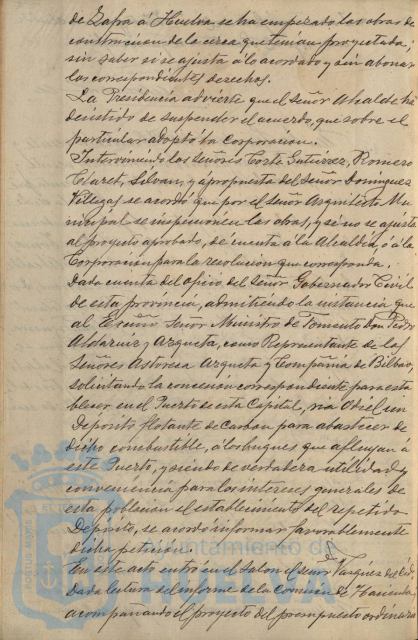 de Zafra á Huelva se ha empezado las obras de
construccion de la cerca que tenian proyectada,
sin saber si se ajusta á lo acordado y sin abonar
los correspondientes derechos.
La Presidencia advierte que el Señor Alcalde há
decistido de suspender el acuerdo, que sobre el
particular adoptó la Corporacion.
Interviniendo los Señores Corte Gutierrez, Romero
Claret, Silvan, y á propuesta del Señor Dominguez
Villegas se acordó que por el Señor Arquitecto Mu-
nicipal se inspeccionen las obras, y si no se ajusta
al proyecto aprobado, dé cuenta á la Alcaldia, ó á la
Corporacion para la resolucion que corresponda.
Dada cuenta del oficio del Señor Gobernador Civil
de esta provincia, admitiendo la instancia que
al Excmo Señor Ministro de Fomento Don Pedro
y Arqueta, como Representante de los
Señores Astorca Arqueta y Compañia de Bilbao,
solicitando la concesion correspondiente para esta
blecer en el Puerto de esta Capital, ria Odiel un
Depósito flotante de Carbon para abastecer de
dicho combustible, á los buques que afluyan á
este Puerto, y siendo de verdadera utilidad y
conveniencia para los intereses generales de
esta poblacion el establecimiento del repetido
Depósito, se acordó informar favorablemente
dicha peticion.
En este acto entró en el Salon el Señor Vasquez del Cid
Dada lectura del informe de la Comision de Hacienda
acompañando el proyecto del presupuesto ordinario
PORTUS MARIS
Ayuntamiento de
HUELVA